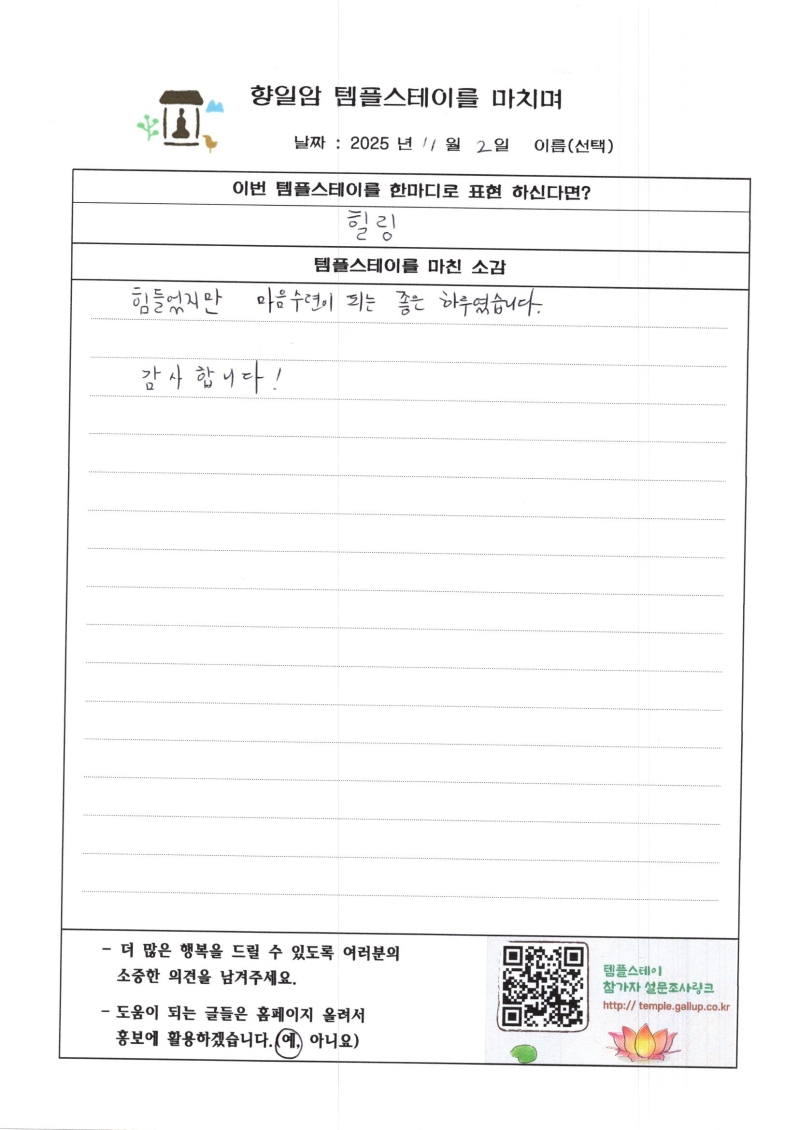 향일암 템플스테이를 마치며
날짜 : 2025 년 11 월 2 일 이름(선택)
이번 템플스테이를 한마디로 표현 하신다면?
힐링
템플스테이를 마친 소감
힘들었지만 마음수련이 되는 좋은 하루였습니다.
감사합니다!
- 더 많은 행복을 드릴 수 있도록 여러분의
소중한 의견을 남겨주세요.
- 도움이 되는 글들은 홈페이지 올려서
홍보에 활용하겠습니다.(예, 아니요)
템플스테이
참가자 설문조사링크
http:// temple.gallup.co.kr